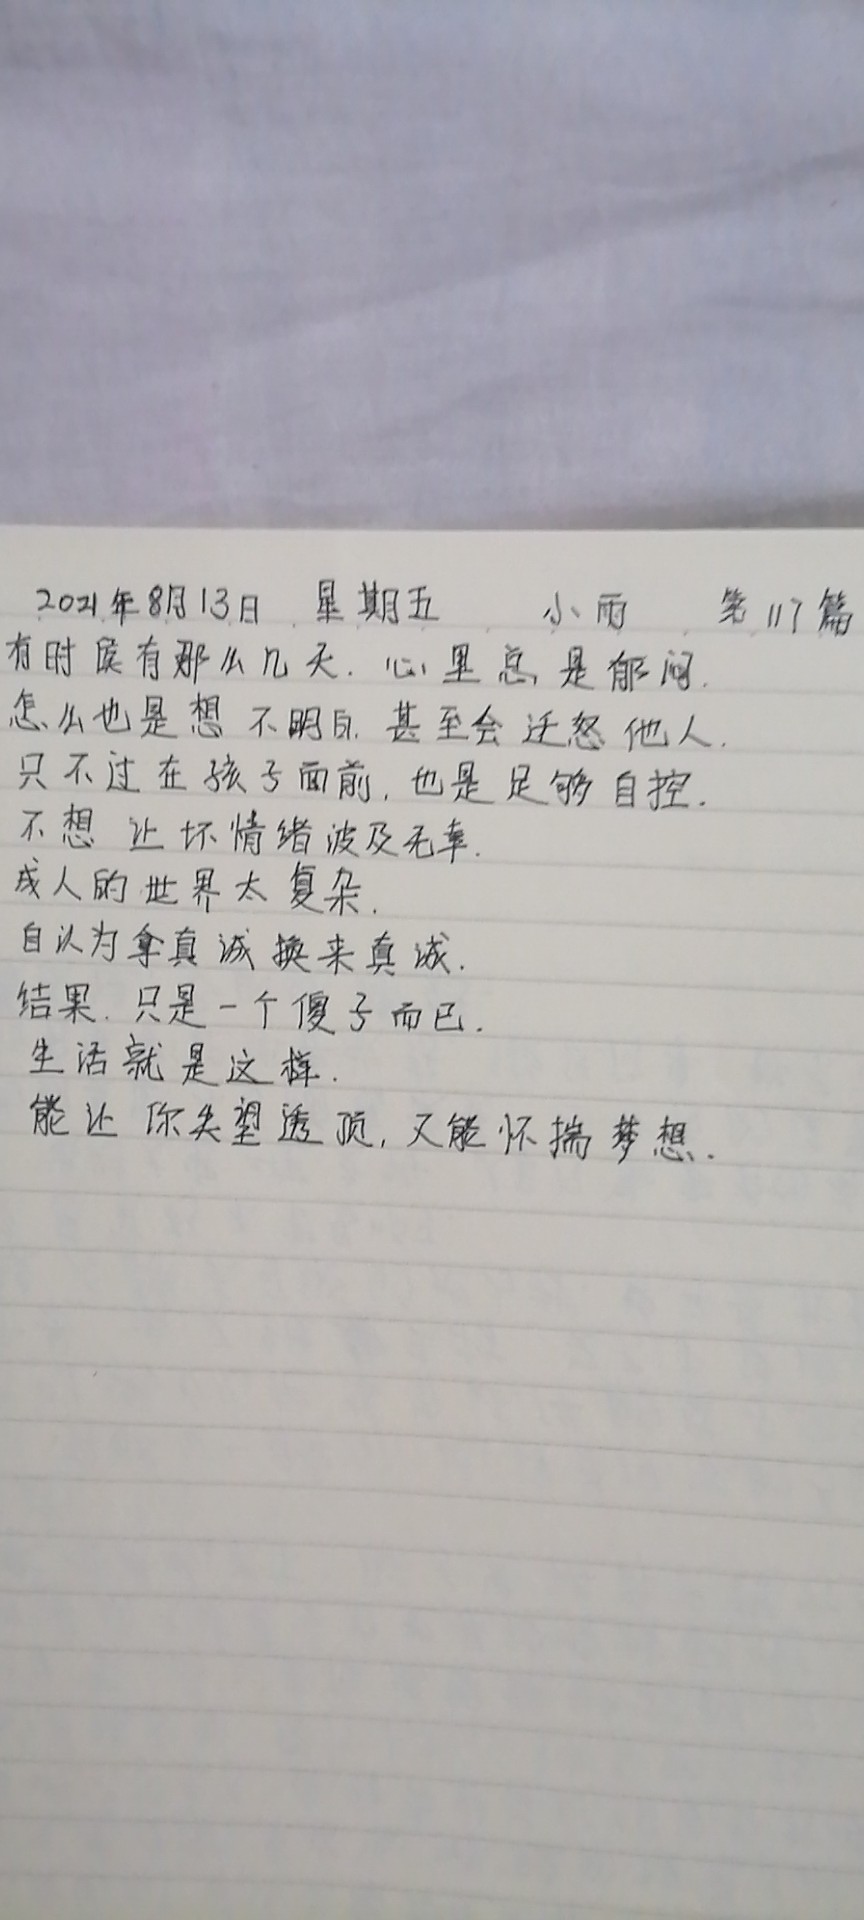 2021年8月13日 星期五 小雨 第117篇
有时候有那么几天.心里总是郁闷.
怎么也是想不明白.甚至会迁怒他人.
只不过在孩子面前,也是足够自控.
不想让坏情绪波及无辜.
成人的世界太复杂.
自认为拿真诚换来真诚.
结果.只是一个傻子而已.
生活就是这样.
能让你失望透顶,又能怀揣梦想.